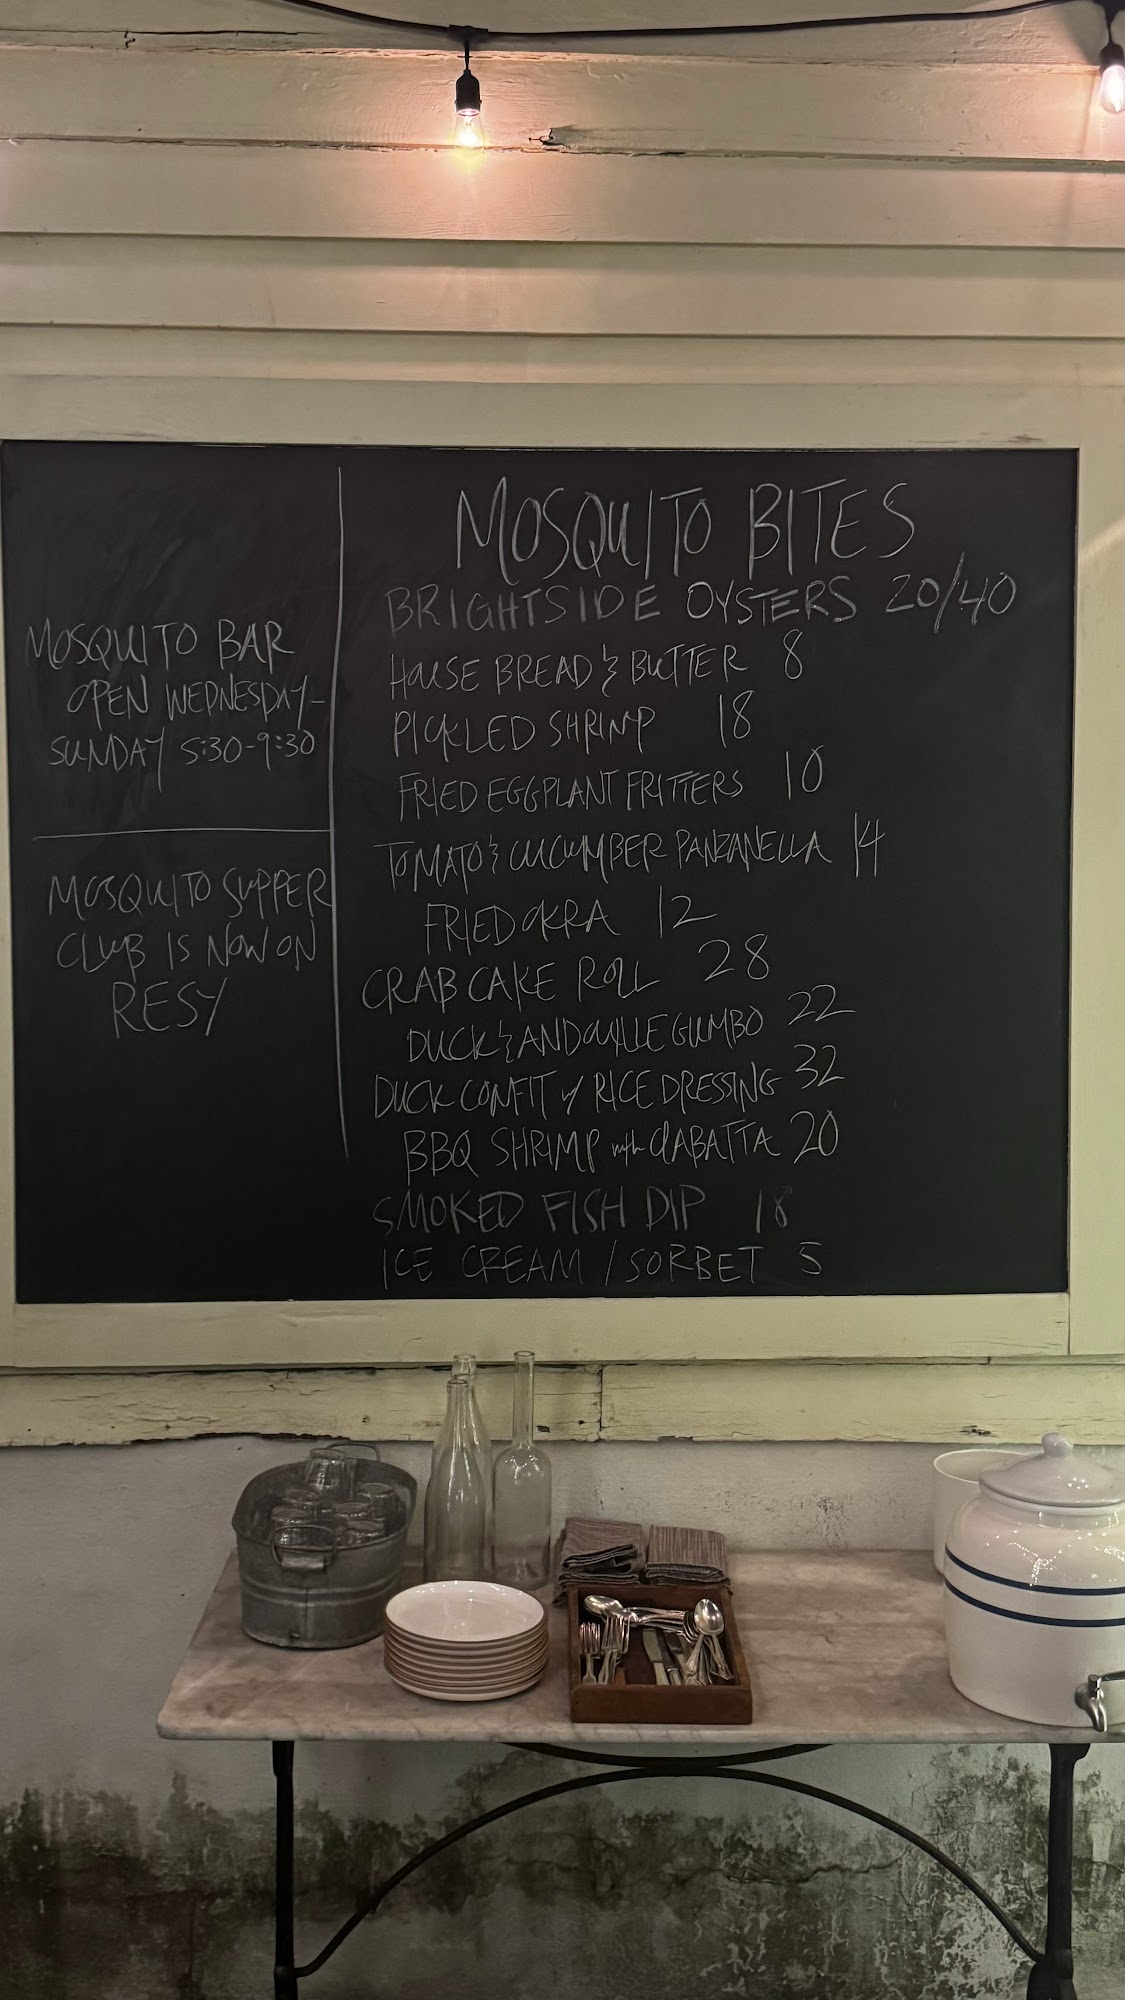 MOSQUITO BAR
OPEN WEDNESDAY-
SUNDAY 5:30-9:30
MOSQUITO SUPPER
CLUB IS NOW ON
RESY
MOSQUITO BITES
BRIGHTSIDE OYSTERS 20/40
HOUSE BREAD & BUTTER 8
PICKLED SHRIMP 18
FRIED EGGPLANT FRITTERS 10
TOMATO & CUCUMBER PANZANELLA 14
FRIED OKRA 12
CRAB CAKE ROLL 28
DUCK & ANDOUILLE GUMBO 22
DUCK CONFIT w/ RICE DRESSING 32
BBQ SHRIMP with CIABATTA 20
SMOKED FISH DIP 18
ICE CREAM / SORBET 5